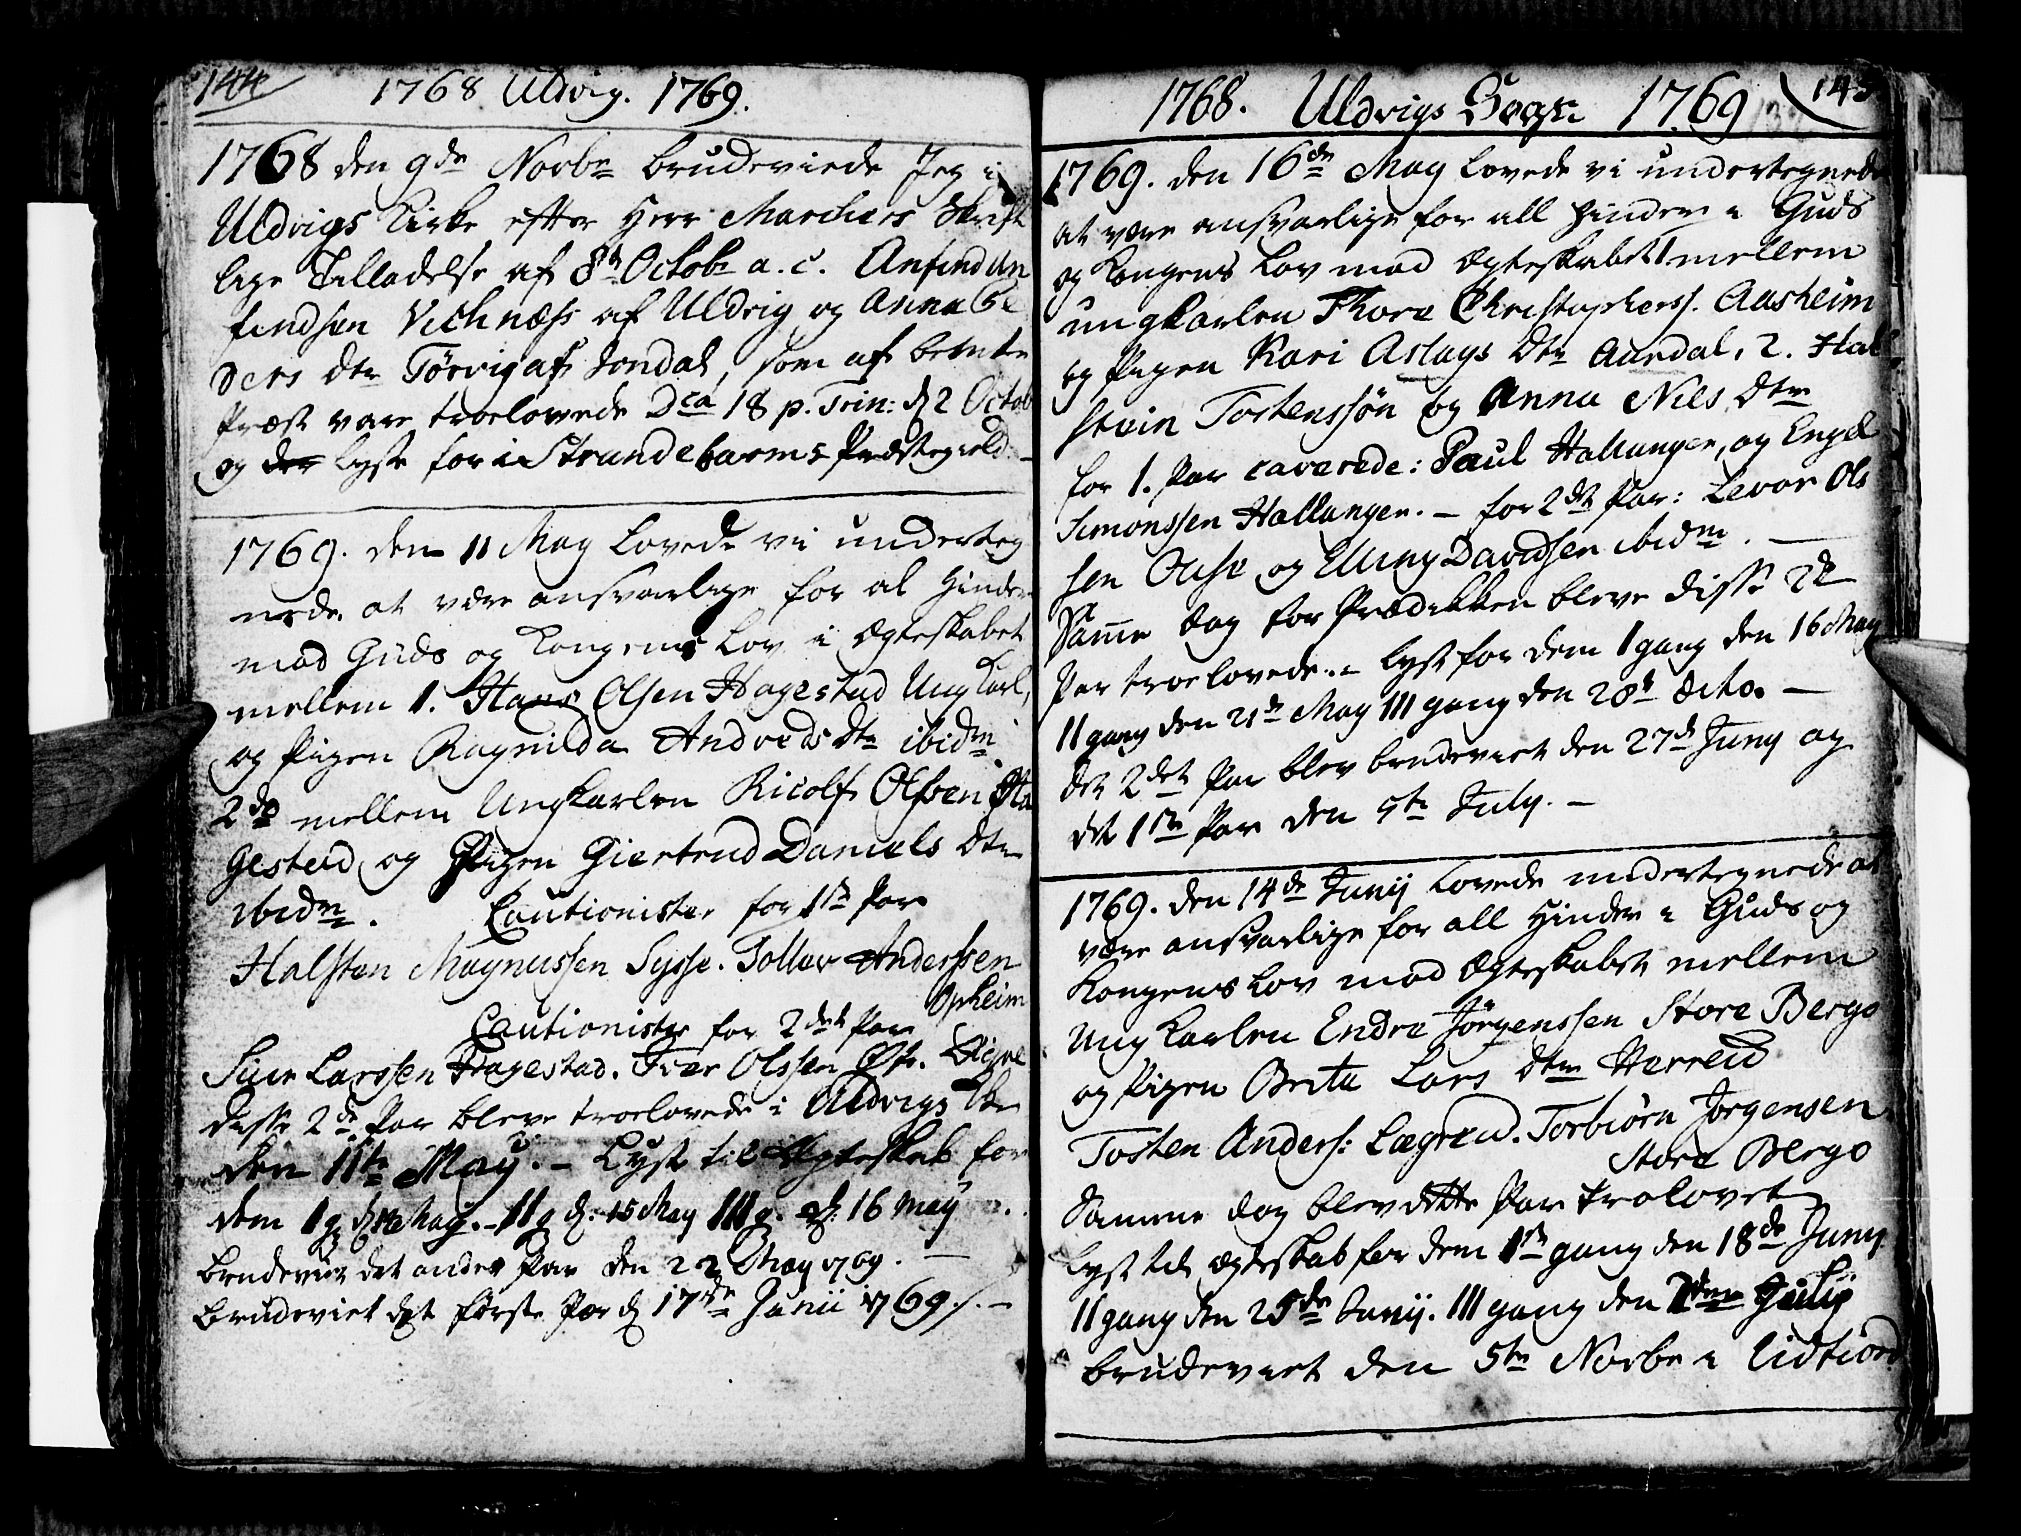 144
1768 Uldvig. 1769.
1768 den 9de Novbr brudeviede Jeg i
Uldvigs Kirke efter Herr Marchers Skrift
lige Tilladelse af 8de Octobr a. c. Anfind An
findsen Vichnæss af Uldvig og Anna Pe
ders Dtr Törvig af Jondal, som af bemte
Præst vare troelovede Dca 18 p. Trin: d. 2 Octob
og der lyst for i Strandebarms Præstegield. –
1769. den 11 May lovede vi underteg
nede at være ansvarlige for al Hinder
mod Guds og Kongens Lov i Ægteskabet
mellem 1. Hans Olsen Hagestad Ungkarl,
og Pigen Ragnilda Andveds Dtr ibidm.
2do mellem Ungkarlen Ricolf Olsen Ha
gestad og Pigen Giertrud Daniels Dtr
ibidm. Cautionister for 1ste Par
Halsten Magnussen Sysse. Tollev Anderssen
Opheim
Cautionister for 2det Par
Siur Larssen Hagestad. Iver Olssen
disse 2de Par bleve troelovede i Uldvigs
den 11te May. – Lyst til Ægteskab for
dem 1 g. d. May. – II g d: 15 May III g. d: 16 may
brudeviet det andet Par den 22 May 1769.
brudeviet det første Par d. 17de Junii 1769 /. –
145
1768. Uldvigs Sogn 1769
1769. den 16de May lovede vi undertegnede
at være ansvarlige for all Hinder i Guds
og Kongens Lov mod Ægteskabet 1 mellem
ungkarlen Thore Christophers. Aasheim
og Pigen Kari Aslags Dtr Aurdal, 2. Hal
stein Tostenssön og Anna Niels Dtr
for 1. Par caverede: Paul Hallanger, og Engel
Simonssen Hallanger. – for 2det Par: Levor Ols
sen Ouse og Elling Davidsen ibidm. –
Samme dag for Prædikken bleve disse 2de
Par troelovede. – lyst for dem 1 gang den 16 May
II gang den 21de May III gang den 28d dito. –
det 2det Par blev brudeviet den 27d Juny og
det 1ste Par den 5te July. –
1769. den 14de Junij lovede undertegnede at
være ansvarlige for all Hinder i Guds og
Kongens Lov mod Ægteskabet mellem
Ungkarlen Endre Jörgenssen Store Berge
og Pigen Brita Lars Dtr Herreid
Tosten Anders: Lægreid. Torbiörn Jörgensen
Store Berge
Samme dag blev dette Par trolovet
lyst til ægteskab for dem 1ste gang den 18de Juny
II gang den 25de Junij. III gang den Julij
brudeviet den 5te Novbr i Eidfiord